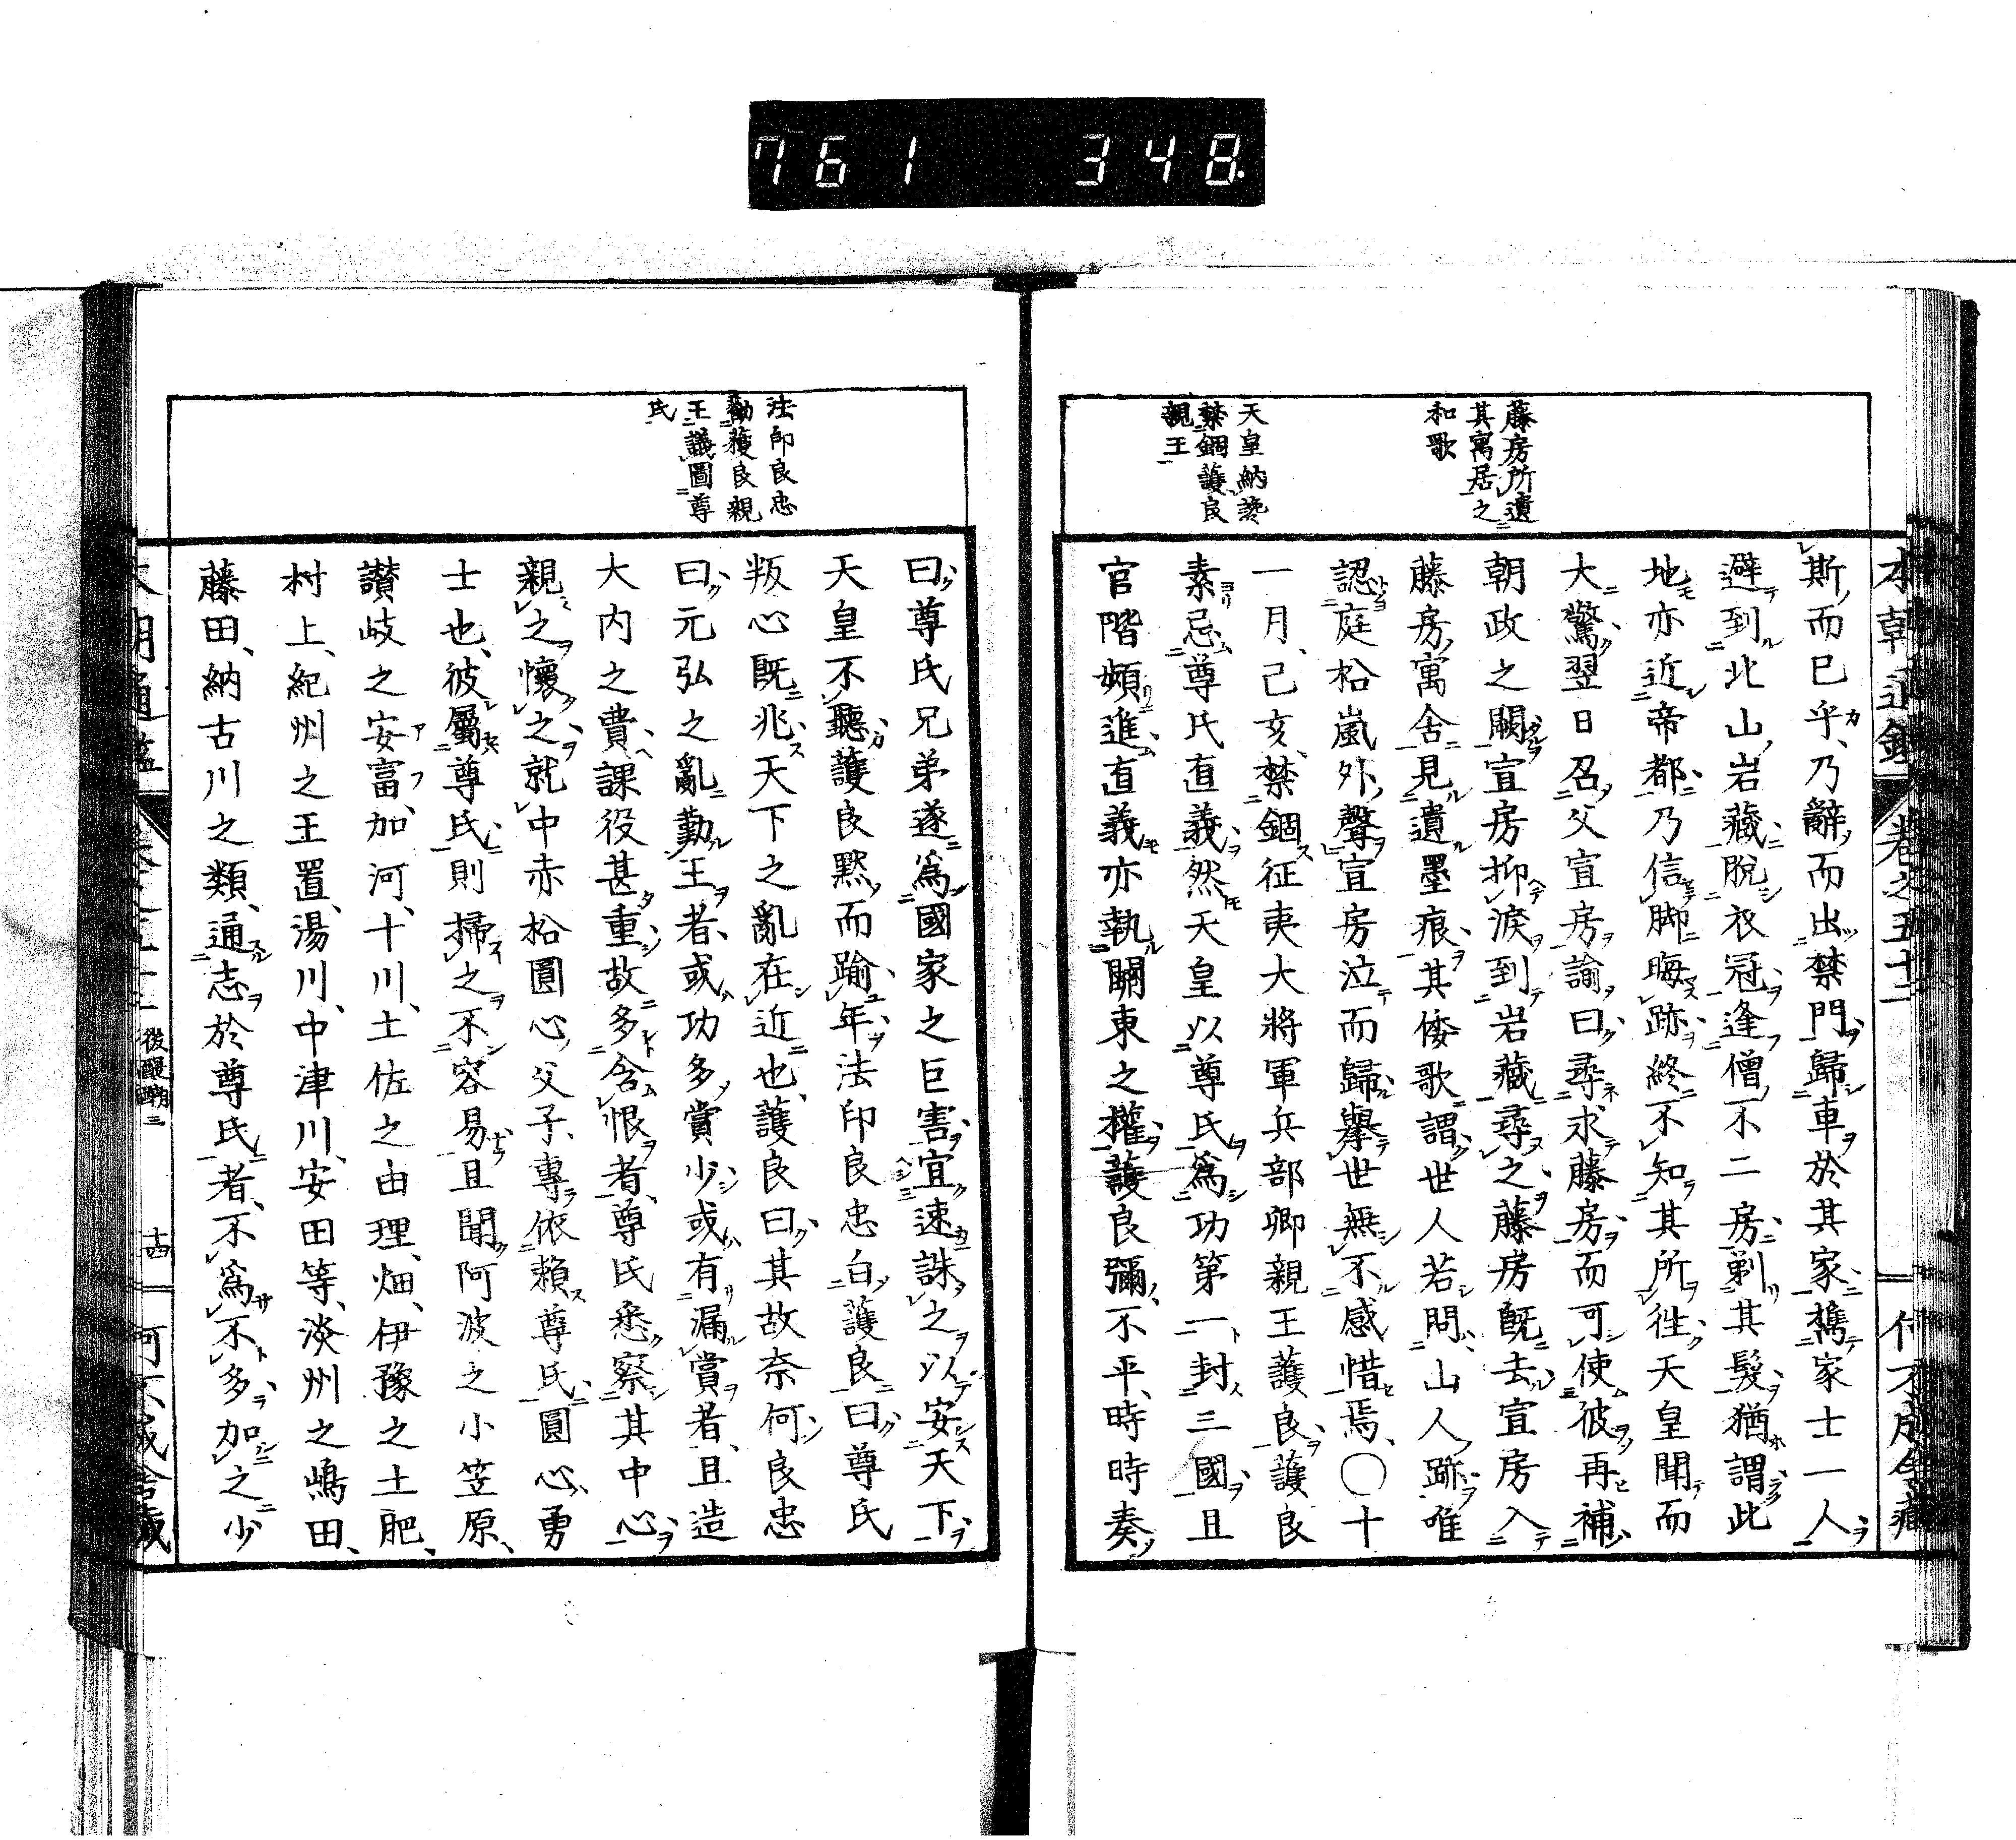 761 348
藤房所遺
其寓居之
和歌
天皇納讒
禁錮護良
親王
本朝通鑑 卷之五十二
斯而已乎乃辭而出禁門歸車於其家携家士一人
避到北山岩藏脫衣冠逢僧不二房剃其髮猶謂此
地亦近帝都乃信脚晦跡終不知其所徃天皇聞而
大驚翌日召父宣房諭曰尋求藤房而可使彼再補
朝政之闕宣房抑淚到岩藏尋之藤房既去宣房入
藤房寓舍見遺墨痕其倭歌謂世人若問山人跡唯
認庭松嵐外聲宣房泣而歸擧世無不感惜焉〇十
一月己亥禁錮征夷大將軍兵部卿親王護良護良
素忌尊氏直義然天皇以尊氏爲功第一封三國且
官階頻進直義亦執關東之權護良彌不平時時奏
法印良忠
勸護良親
王議圖尊
氏
曰尊氏兄弟遂爲國家之巨害宜速誅之以安天下
天皇不聽護良黙而踰年法印良忠白護良曰尊氏
叛心既兆天下之亂在近也護良曰其故奈何良忠
曰元弘之亂勤王者或功多賞少或有漏賞者且造
大内之費課役甚重故多含恨者尊氏悉察其中心
親之懷之就中赤松圓心父子專依賴尊氏圓心勇
士也彼屬尊氏則掃之不容易且聞阿波之小笠原
讃岐之安富加河十川土佐之由理畑伊豫之土肥
村上紀州之王置湯川中津川安田等淡州之嶋田
藤田納古川之類通志於尊氏者不爲不多加之少
後醍醐二 十四